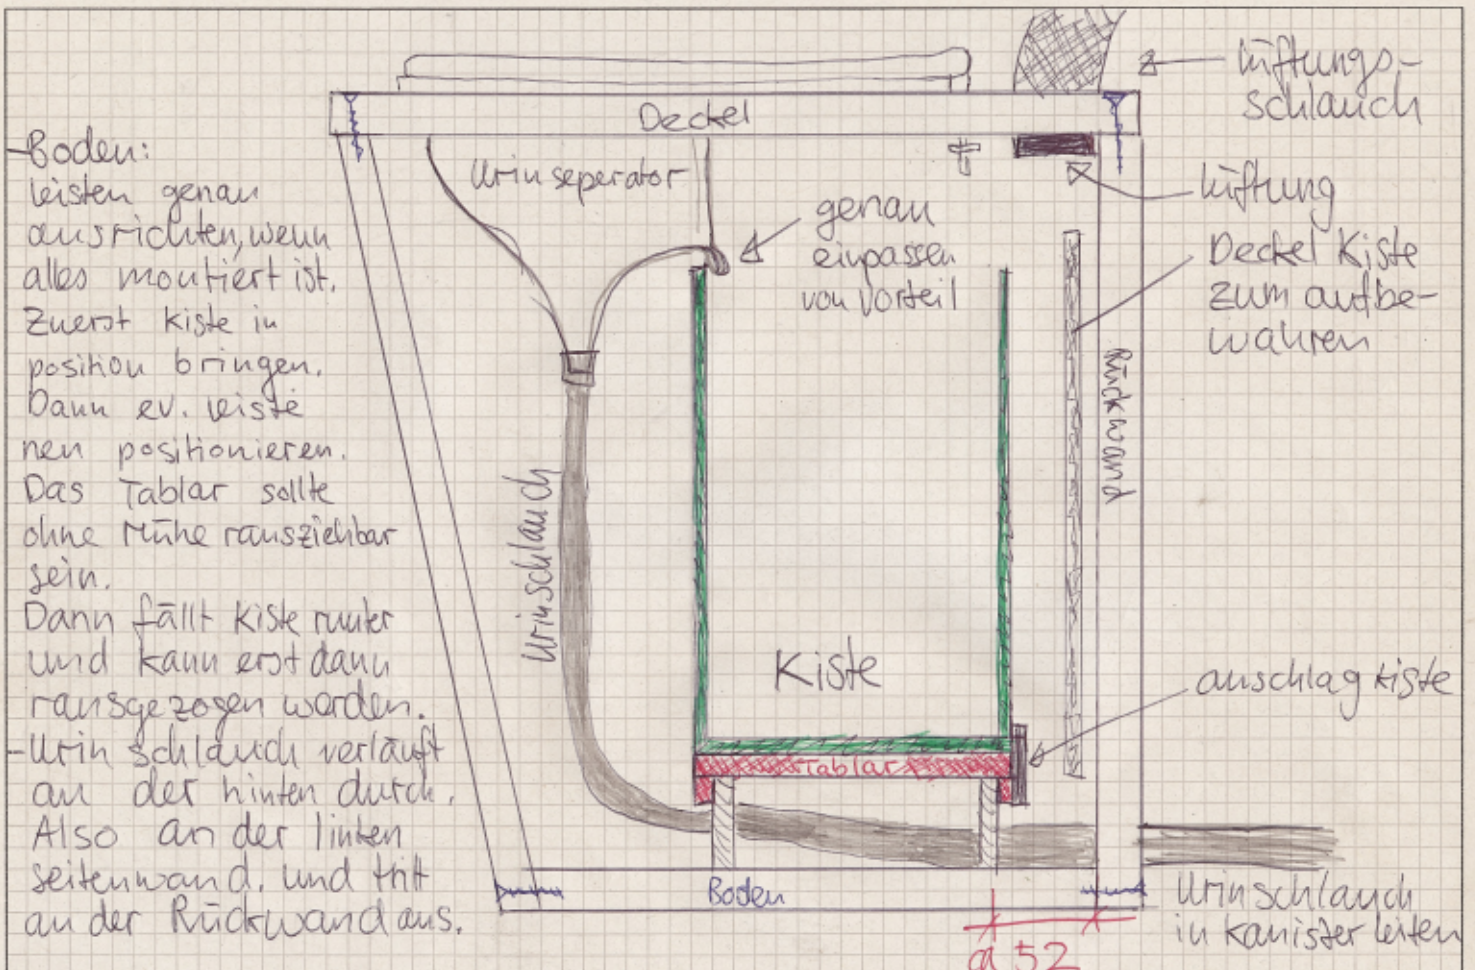 - Boden:
Leisten genau
ausrichten, wenn
alles montiert ist.
Zuerst Kiste in
position bringen.
Dann ev. Leiste
neu positionieren.
Das Tablar sollte
ohne Mühe rausziehbar
sein.
Dann fällt Kiste runter
und kann erst dann
rausgezogen werden.
- Urin schlauch verläuft
an der hinten durch.
Also an der linken
seitenwand. und tritt
an der Rückwand aus.
Deckel
Urinseperator
genau
einpassen
von Vorteil
Urinschlauch
Kiste
Tablar
Boden
Lüftungs-
schlauch
Lüftung
Deckel Kiste
zum aufbe-
wahren
Rückwand
anschlag Kiste
Urinschlauch
in Kanister leiten
52